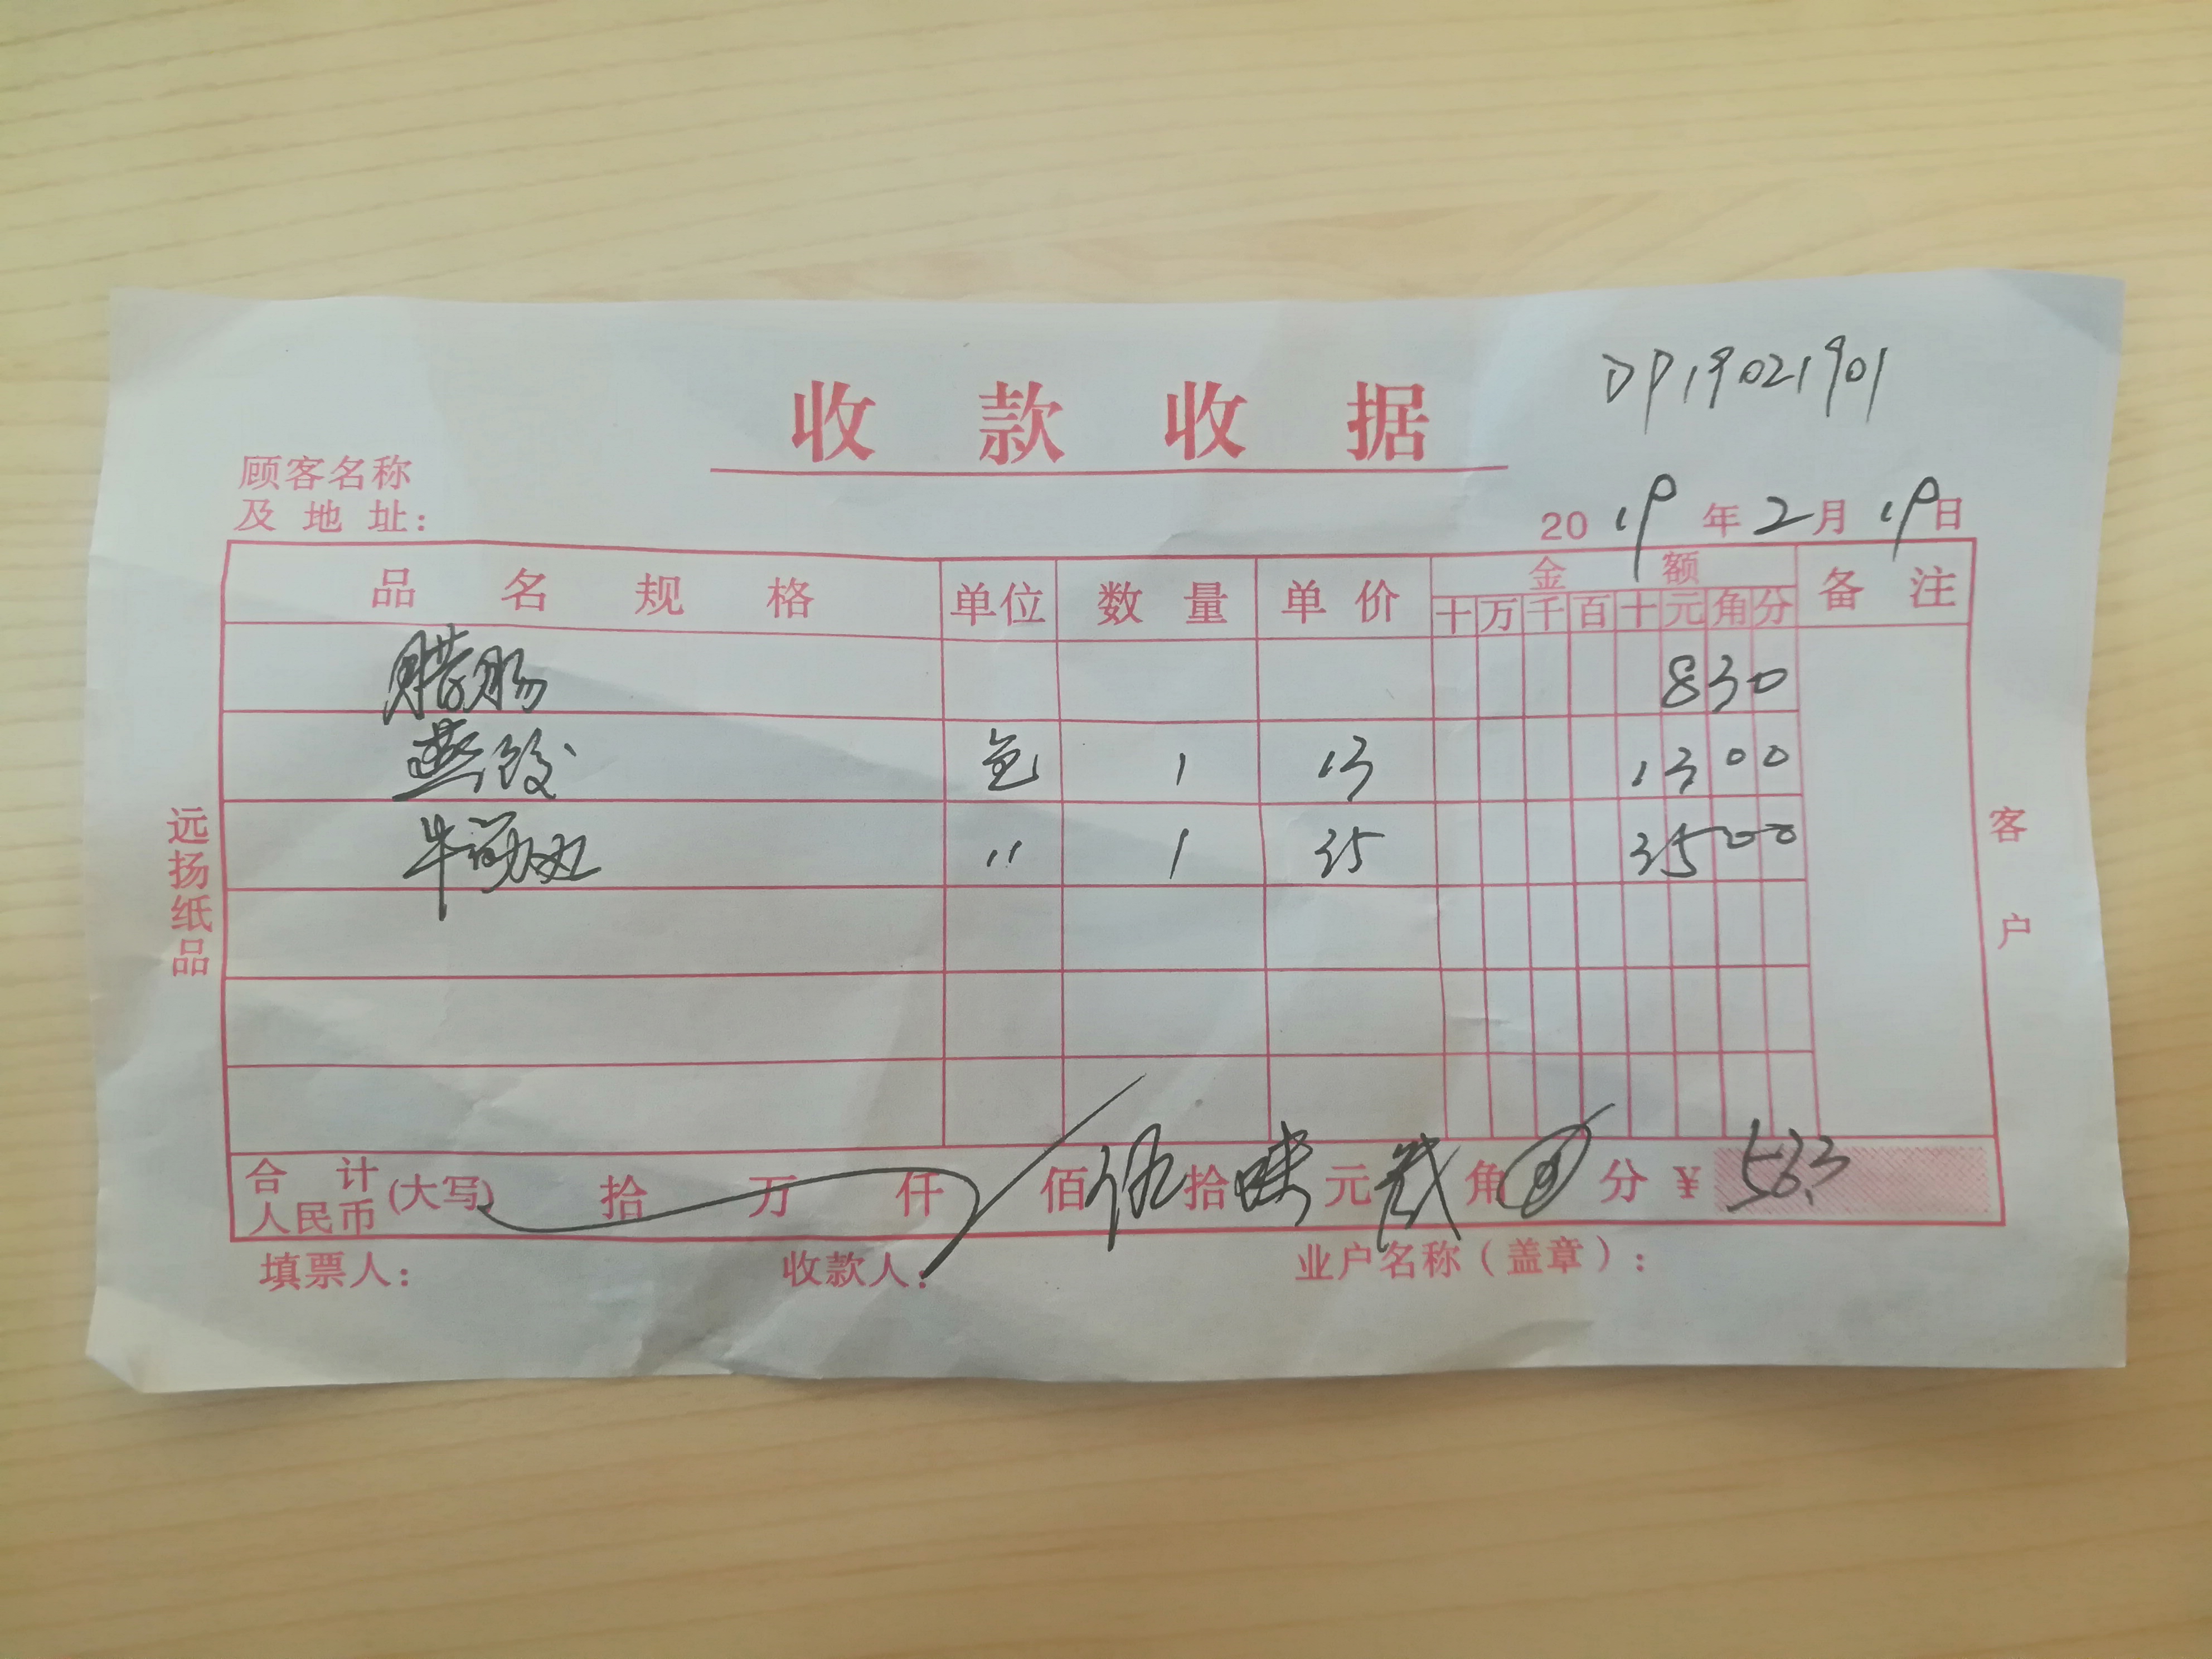 DP19021901
收款收据
顾客名称
及地址：
2019年2月19日
品名规格 单位 数量 单价 金额 备注
十万千百十元角分
腊肠 830
蒸饺 包 1 13 1300
牛筋丸 〃 1 35 3500
远扬纸品
客户
合计
人民币(大写) 拾 万 仟 佰伍拾 元 角 分 ¥ 56.3
填票人： 收款人： 业户名称（盖章）：